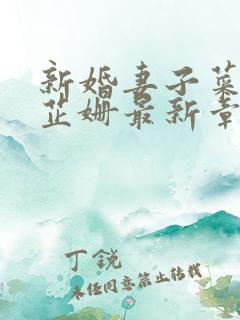 新婚妻子菜
芷姗最新章
丁銳
未经同意禁止转载